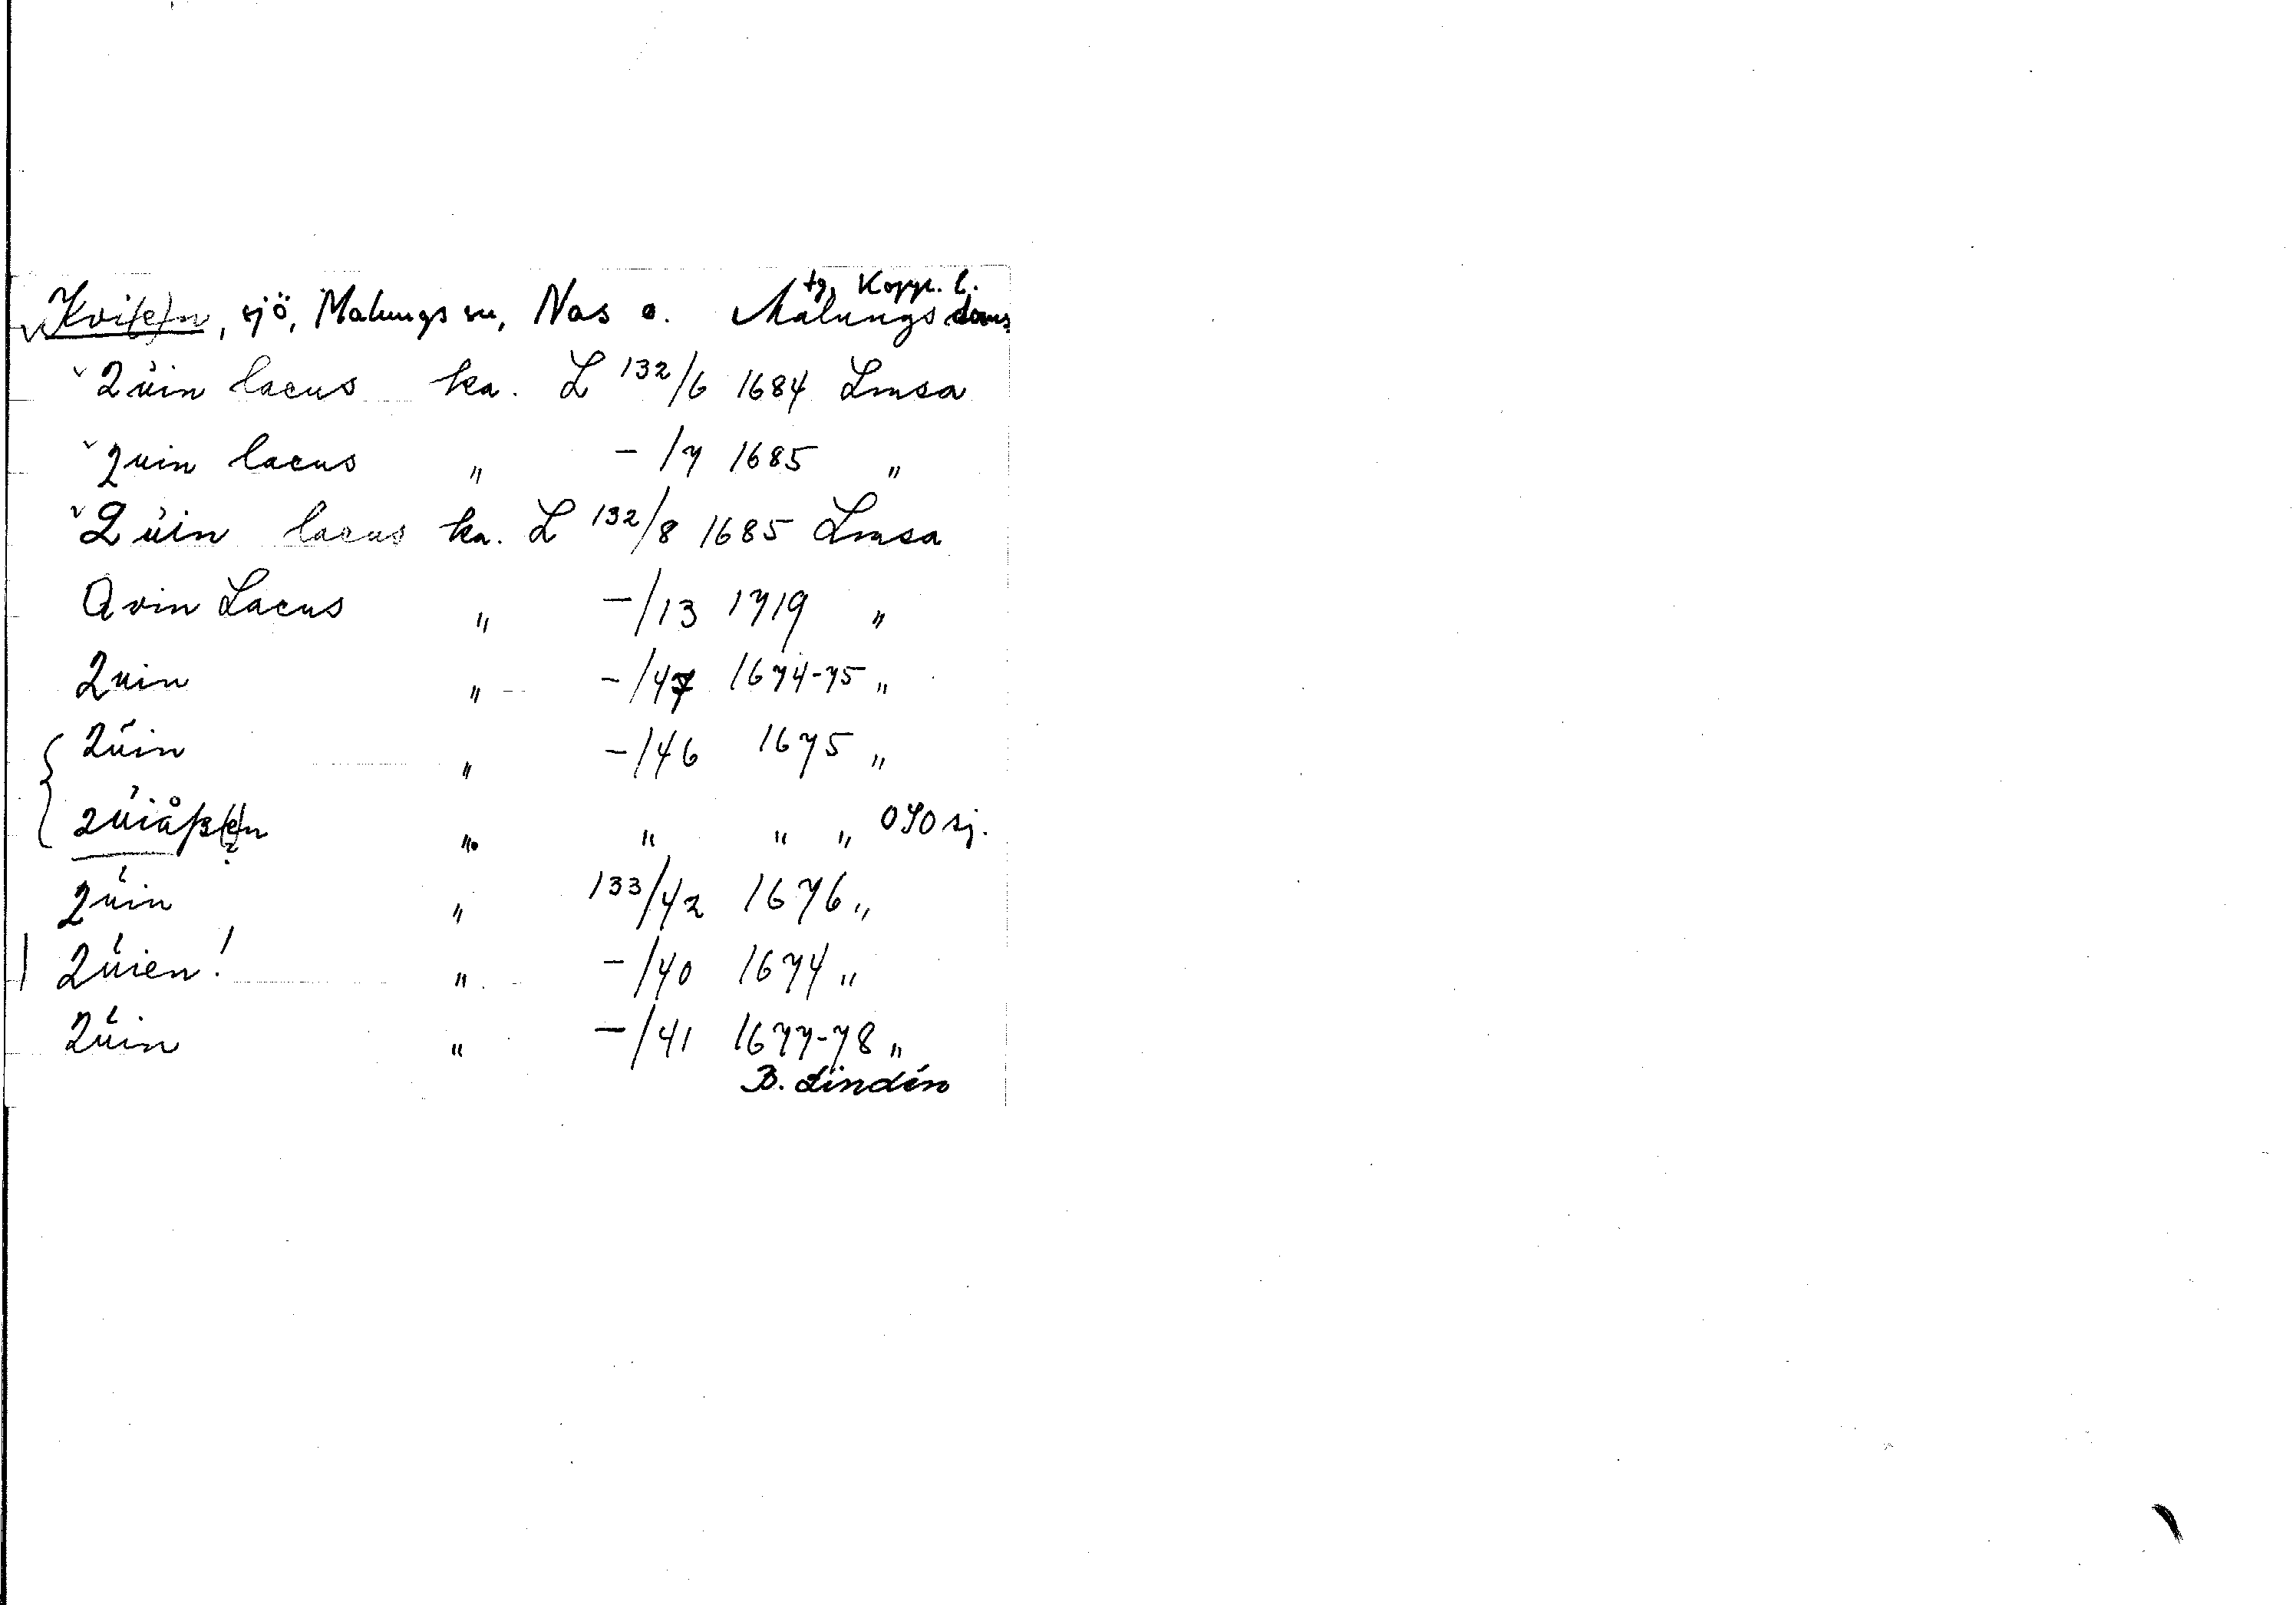 Kvi(e)n, sjö, Malungs sn, Nås o. Malungs tg, Kopp. l.
Qüin lacus ka. L 132/6 1684 Lmsa
Quin lacus " -/7 1685 "
Qüin lacus ka. L 132/8 1685 Lmsa
Qvin Lacus " -/13 1719 "
Quin " -/47 1674-75 "
Qüin " -/46 1675 "
Qüiåß(e)n " " " " OSO sj.
Qüin " 133/42 1676 "
Qüien! " -/40 1674 "
Qüin " -/41 1677-78 "
B. Lindén